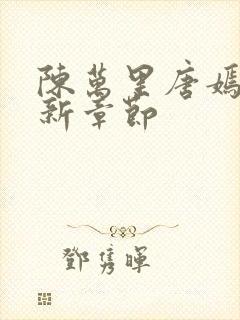 陳萬里唐嫣
新章節
鄧雋暉